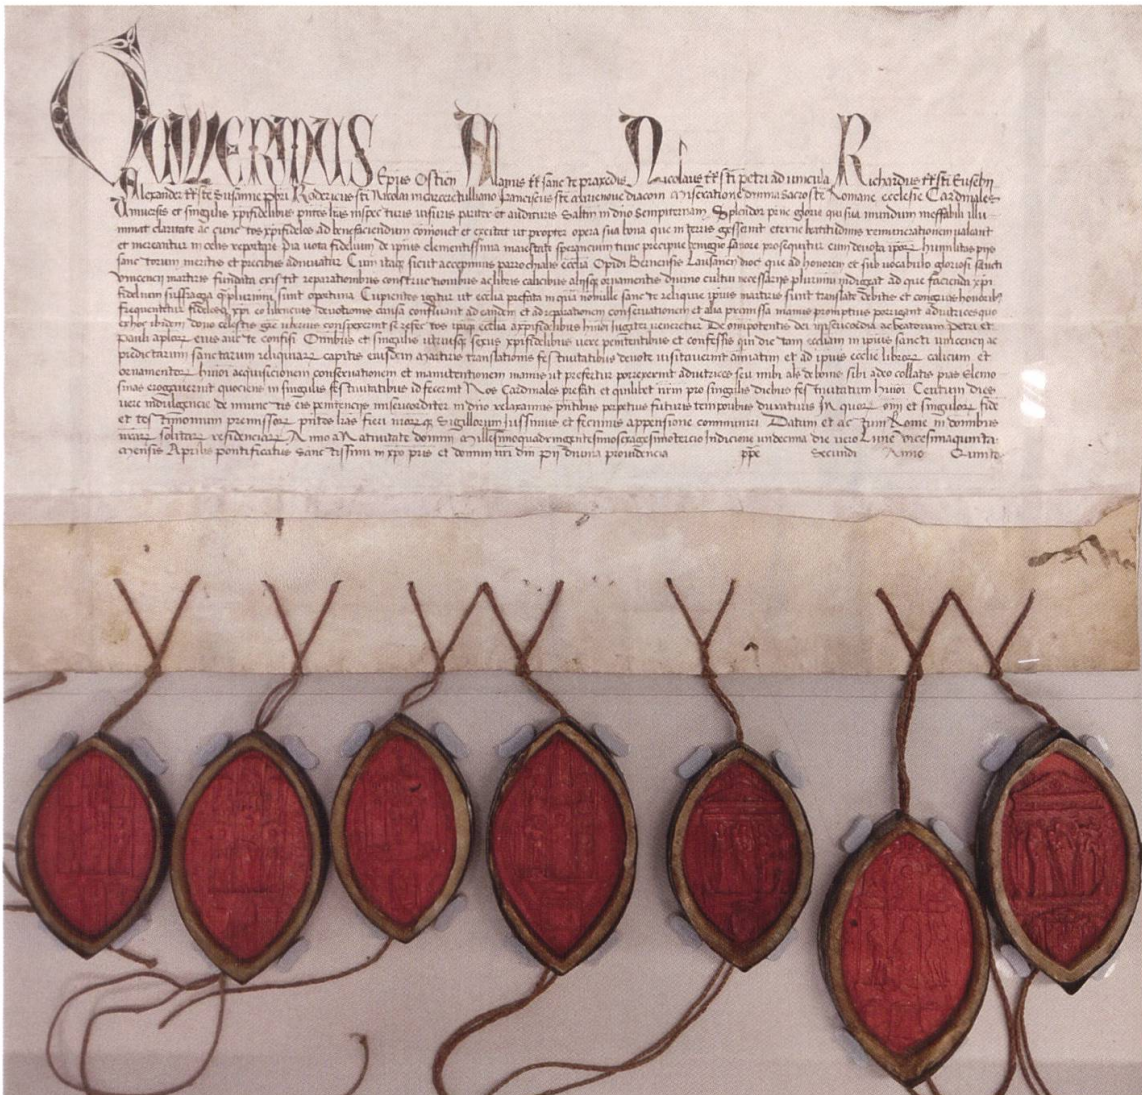 Guillermus Epus Ostien Alanus tt sancte praxedis Nicolaus tt sti petri ad uincula Richardus tt sti Eusebij
Alexander tt ste Susanne pbri Rodericus sti Nicolai in carcere tulliano Franciscus ste marienoue diaconi miseratione diuina sacroste Romane ecclesie Cardinales
Uniuersis et singulis xpifidelibus pntes lras inspecturis uisuris pariter et audituris Saltm in dno Sempiternam Splendor pne glorie qui sua mundum ineffabili illu
minat claritate ac cunctos xpifideles ad benefaciendum comouet et excitat ut propter opera sua bona que in terris gesserint eterne beatitudinis remuneracionem habeant
et mereantur in celis reportare pia uota fidelium de ipius clementissima maiestate sperancium tunc precipue benigno fauore prosequitur cum deuota ipor humilitas pijs
sanctorum meritis et precibus adiuuatur Cum itaq sicut accepimus parrochialis ecclia Opidi Bernensis Lausanen dioc que ad honorem et sub uocabulo gloriosi sancti
Vincencij martiris fundata existit reparationibus constructionibus ac libris calicibus alijsq ornamentis diuino cultui necessarijs plurimum indigeat ad que facienda xpi
fidelium suffragia qplurimum sunt oportuna Cupientes igitur ut ecclia prefata in qua nonnulle sancte reliquie ipius martiris sunt translate debitis et congruis honoribus
frequentetur fidelesq xpi eo libencius deuotionis causa confluant ad eandem et ad reparationem conseruationem et alia premissa manus promptius porrigant adiutrices quo
ex hoc ibidem dono celestis gre uberius conspexerint se refectos ipaq ecclia a xpifidelibus huiusmodi iugiter ueneretur De omipotentis dei misericordia ac beatorum Petri et
Pauli aplor eius auctte confisi Omnibus et singulis utriusq sexus xpifidelibus uere penitentibus et confessis qui dictam eccliam in ipius sancti uincencij ac
predictarum sanctarum reliquiar capitis eiusdem martiris translationis festiuitatibus deuote uisitauerint annuatim et ad ipius ecclie libror calicum et
ornamentor huiusmodi acquisicionem conseruationem et manutentionem manus ut prefertur porrexerint adiutrices seu inibi als de bonis sibi a deo collatis pias elemo
sinas erogauerint quociens in singulis festiuitatibus id fecerint Nos Cardinales prefati et quilibet nrm pro singulis diebus festiuitatum huiusmodi Centum dies
uere indulgencie de iniunctis eis penitencijs misericorditer in dno relaxamus pntibus perpetuis futuris temporibus duraturis In quor omi et singulor fidem
et testimonium premissor pntes lras fieri nrorq Sigillorum iussimus et fecimus appensione communiri Datum et actum Rome in domibus
nrar solitar residenciar Anno a Natiuitate domini Millesimoquadringentesimosexagesimotercio Indicione undecima die uero Lune uicesimaquinta
mensis Aprilis pontificatus sanctissimi in xpo pris et domini nri dni Pij diuina prouidencia ppe secundi Anno Quinto